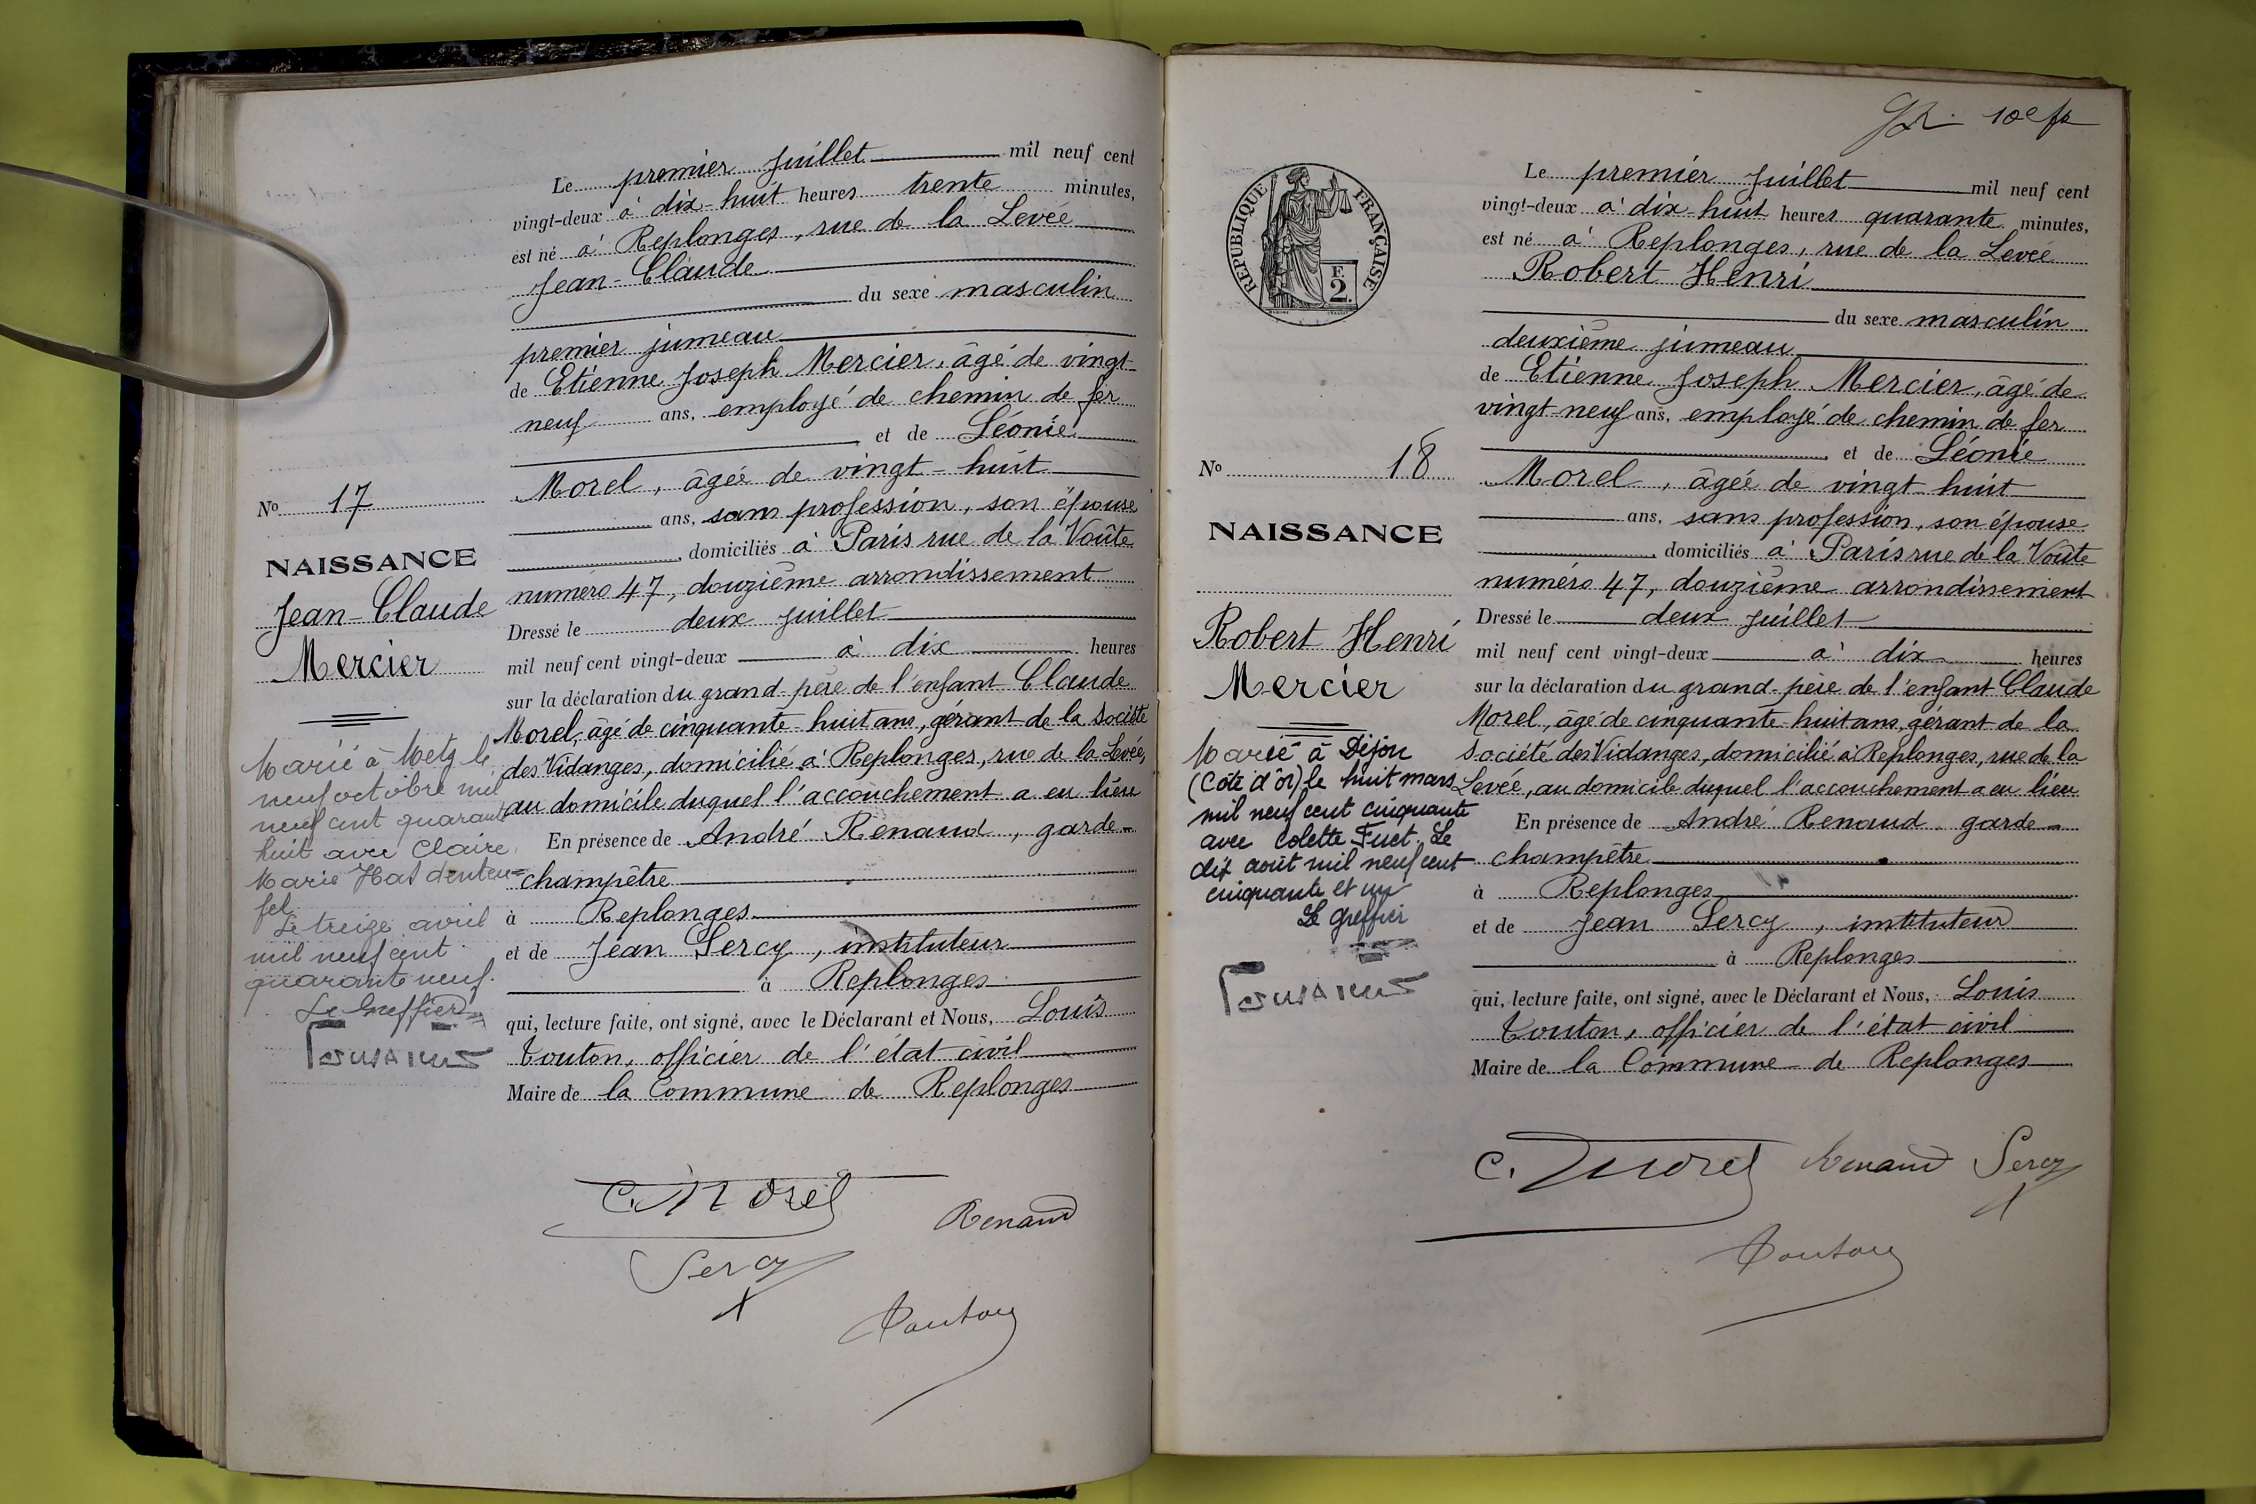 Le premier Juillet mil neuf cent
vingt-deux à dix-huit heures trente minutes,
est né à Replonges, rue de la Levée
Jean-Claude
du sexe masculin
premier jumeau
de Etienne Joseph Mercier, âgé de vingt-
neuf ans, employé de chemin de fer
et de Léonie
Morel, âgée de vingt-huit
ans, sans profession, son épouse
domiciliés à Paris rue de la Voûte
numéro 47, douzième arrondissement
Dressé le deux Juillet
mil neuf cent vingt-deux à dix heures
sur la déclaration du grand-père de l'enfant Claude
Morel, âgé de cinquante-huit ans, gérant de la Société
des Vidanges, domicilié à Replonges, rue de la Levée,
au domicile duquel l'accouchement a eu lieu
En présence de André Renaud, garde-
champêtre
à Replonges
et de Jean Sercy, instituteur
à Replonges
qui, lecture faite, ont signé, avec le Déclarant et Nous, Louis
Touton, officier de l'état civil
Maire de la Commune de Replonges
C. Morel
Renaud
Sercy
Touton
No 17
NAISSANCE
Jean-Claude
Mercier
Marié à Metz le
neuf octobre mil
neuf cent quarante
huit avec Claire
Marie Hasdenteu=
fel
Le treize avril
mil neuf cent
quarante neuf.
Le Greffier
10e fo
RÉPUBLIQUE FRANÇAISE
F.
2.
Le premier Juillet mil neuf cent
vingt-deux à dix-huit heures quarante minutes,
est né à Replonges, rue de la Levée
Robert Henri
du sexe masculin
deuxième jumeau
de Etienne Joseph Mercier, âgé de
vingt-neuf ans, employé de chemin de fer
et de Léonie
Morel, âgée de vingt-huit
ans, sans profession, son épouse
domiciliés à Paris rue de la Voûte
numéro 47, douzième arrondissement
Dressé le deux Juillet
mil neuf cent vingt-deux à dix heures
sur la déclaration du grand-père de l'enfant Claude
Morel, âgé de cinquante-huit ans, gérant de la
Société des Vidanges, domicilié à Replonges, rue de la
Levée, au domicile duquel l'accouchement a eu lieu
En présence de André Renaud garde-
champêtre
à Replonges
et de Jean Sercy, instituteur
à Replonges
qui, lecture faite, ont signé, avec le Déclarant et Nous, Louis
Touton, officier de l'état civil
Maire de la Commune de Replonges
C. Morel Renaud Sercy
Touton
No 18
NAISSANCE
Robert Henri
Mercier
Marié à Dijon
(Côte d'Or) le huit mars
mil neuf cent cinquante
avec Colette Fuet. Le
dix août mil neuf cent
cinquante et un
Le Greffier